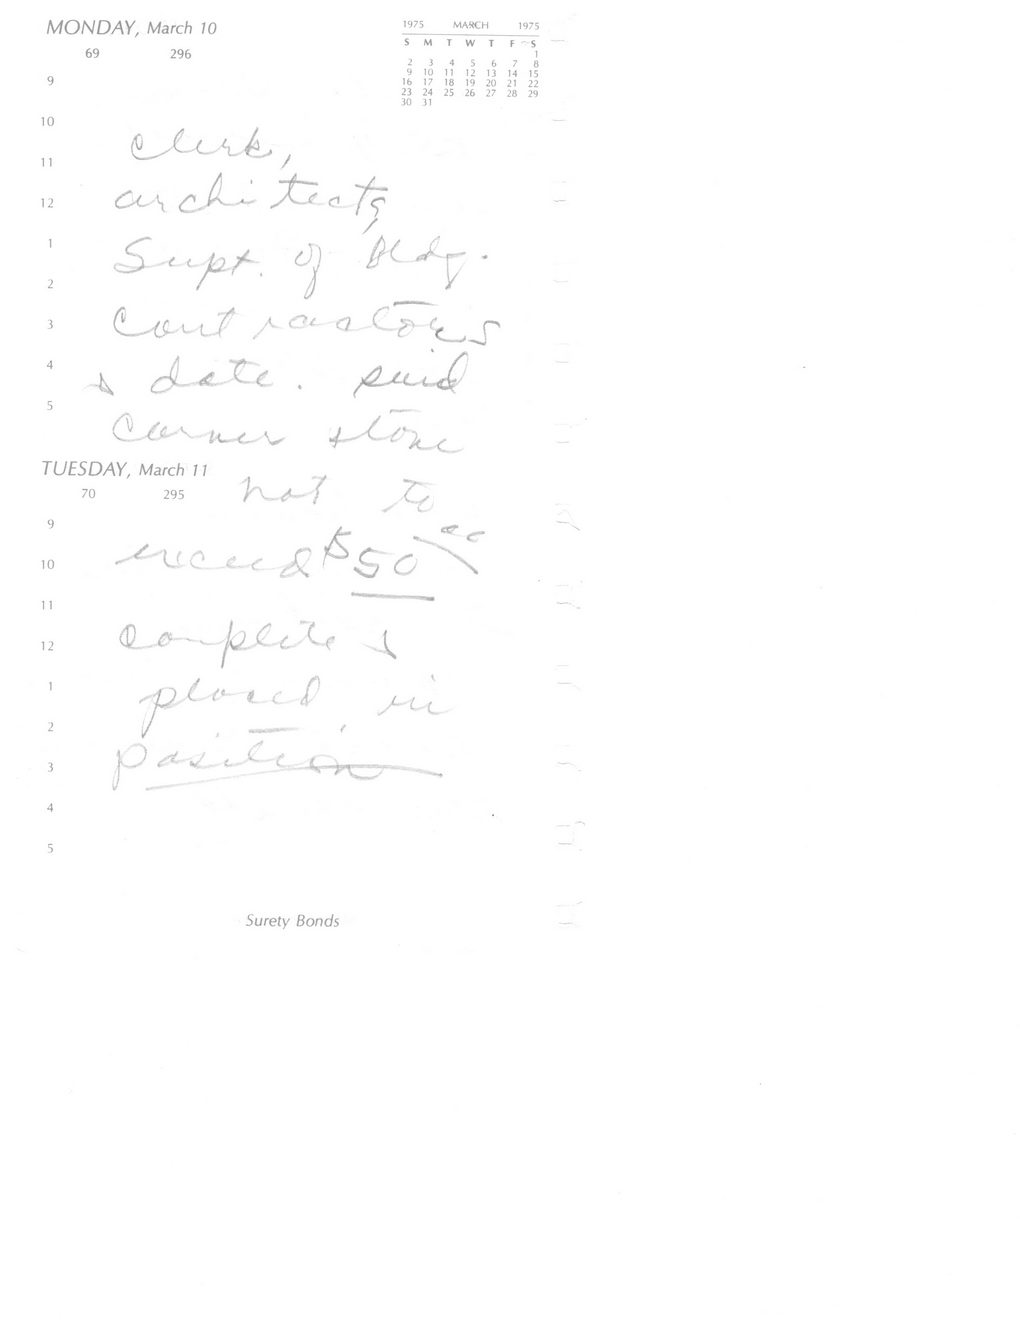 MONDAY, March 10
69 296
1975 MARCH 1975
S M T W T F S
1
2 3 4 5 6 7 8
9 10 11 12 13 14 15
16 17 18 19 20 21 22
23 24 25 26 27 28 29
30 31
9
10
clerk,
11
12 architects,
1 Supt. of Bldg.
2
3 contractors
4 & date. said
5
corner stone
TUESDAY, March 11
70 295 not to
9
10 exceed $50 00
11
12 complete &
1 placed in
2
3 position
4
5
Surety Bonds